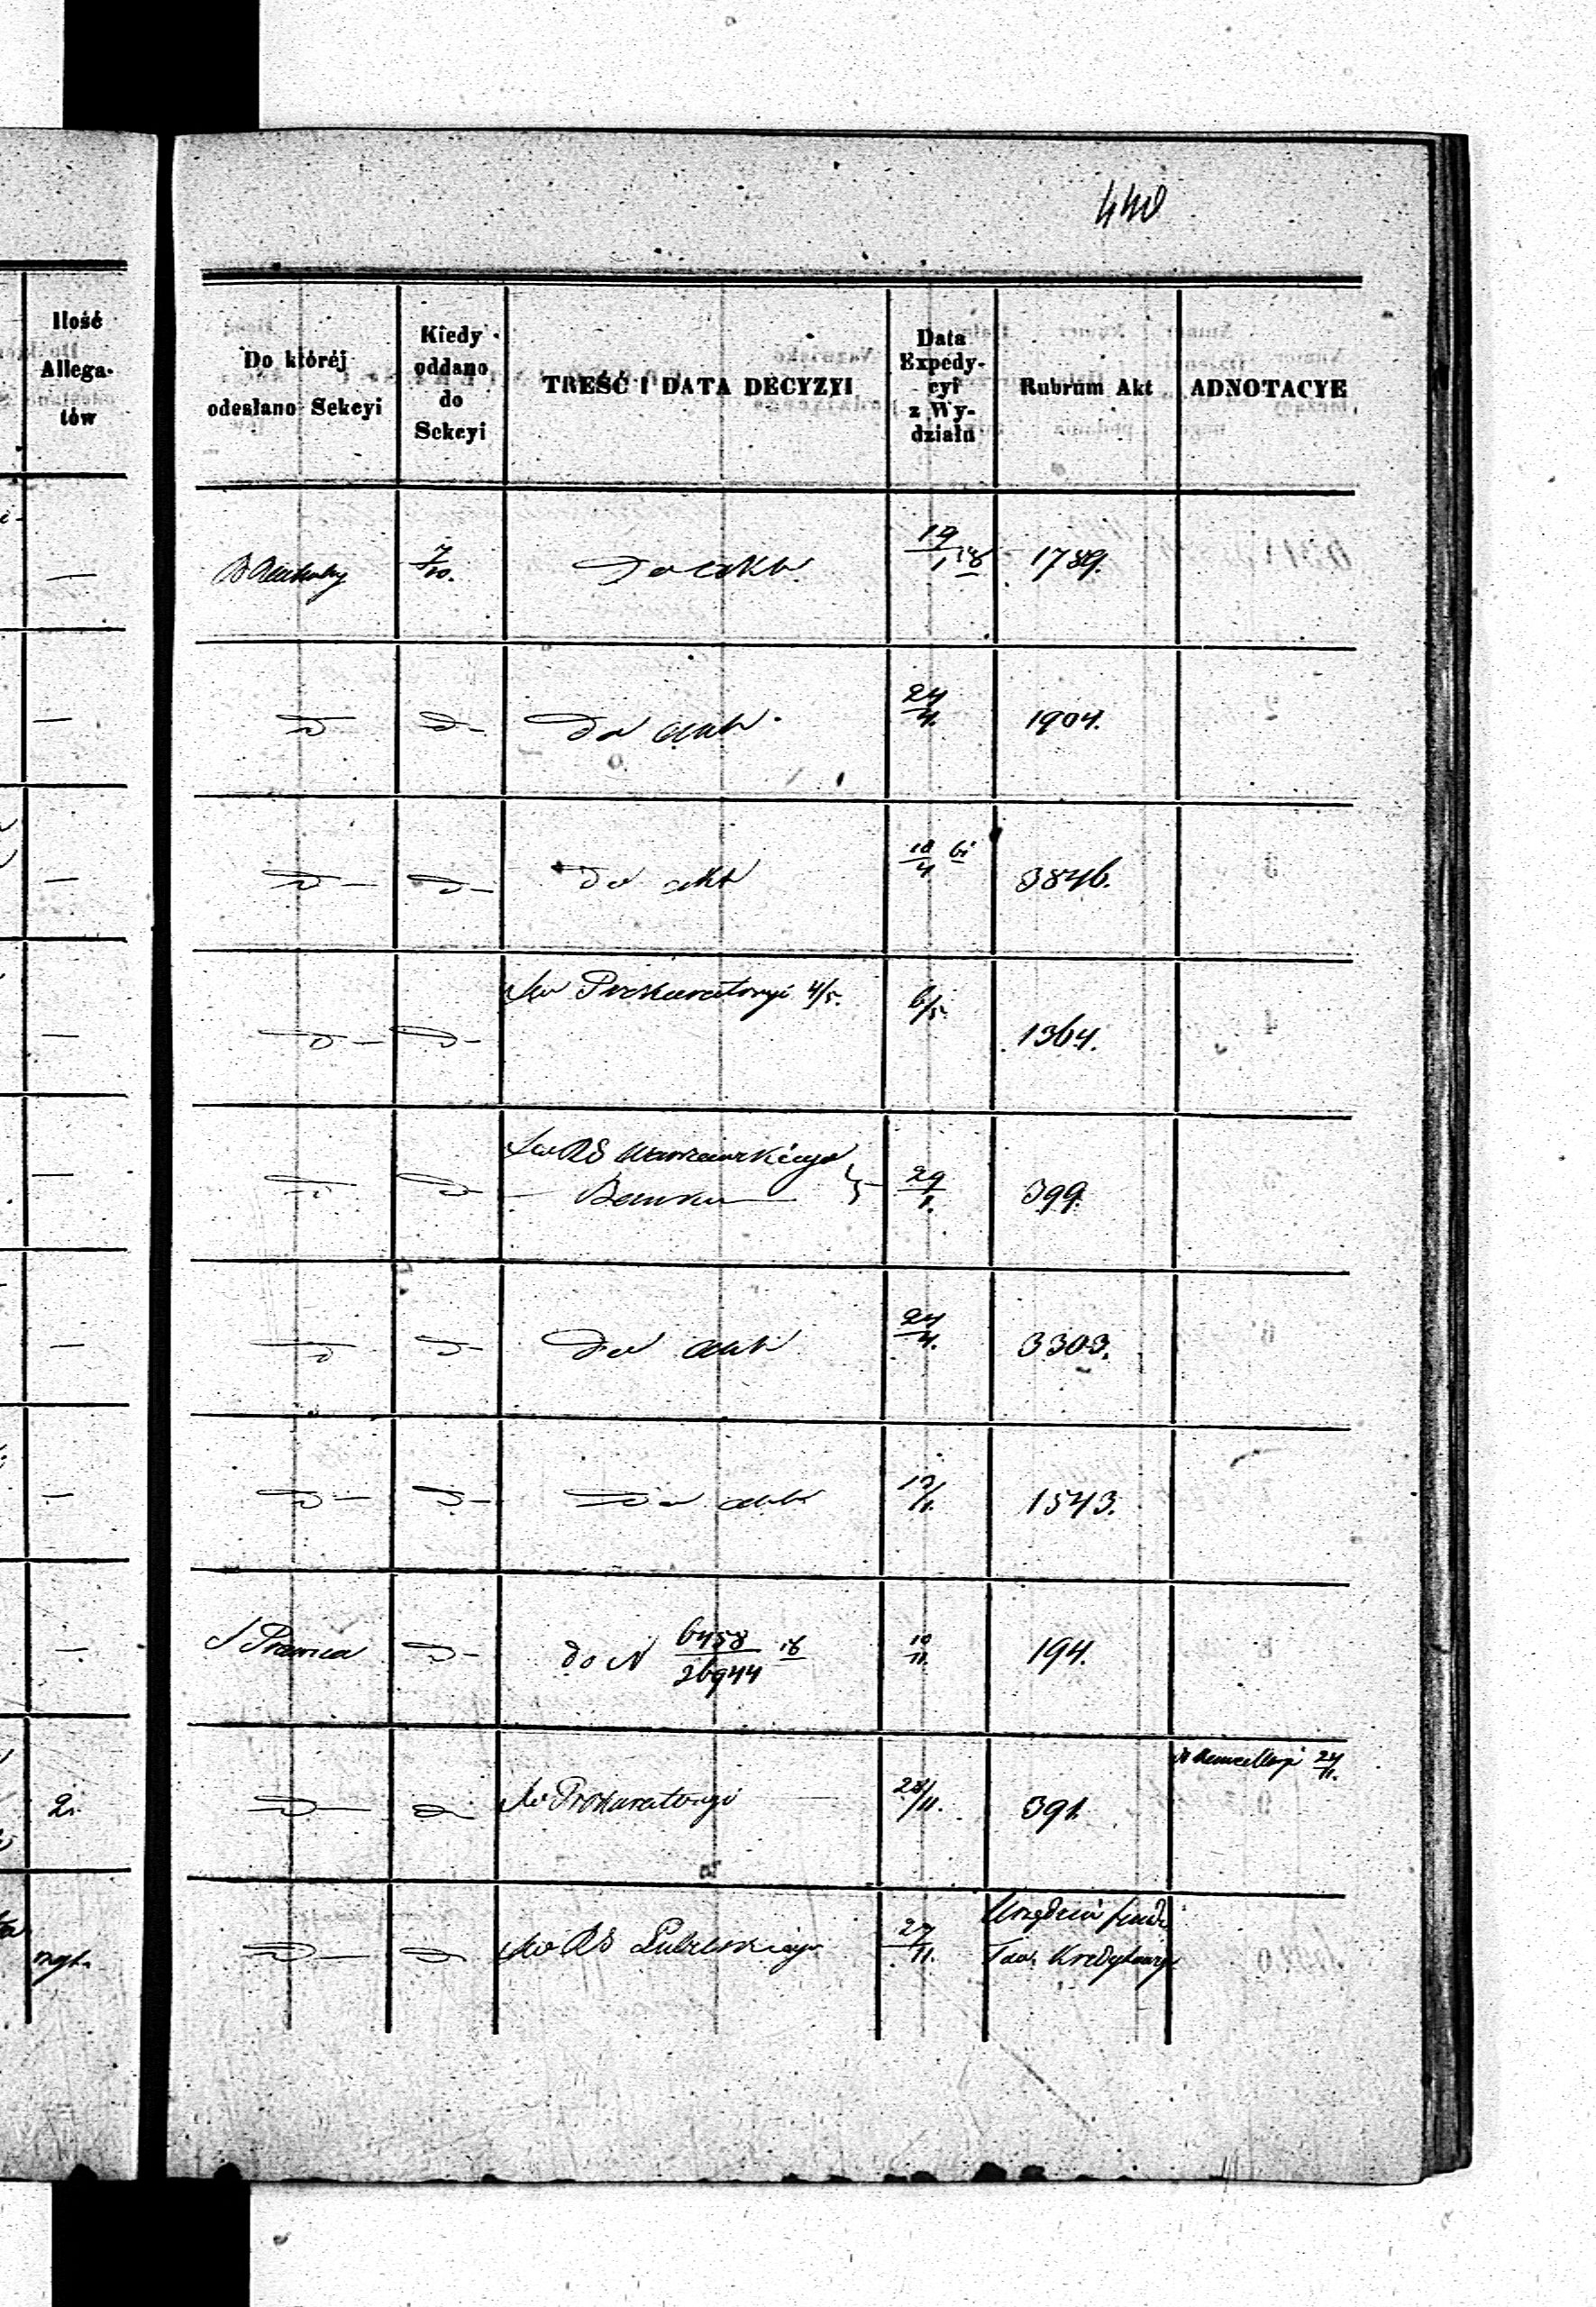 440
Ilość
Allega-
tów
Do któréj
odesłano Sekcyi
Kiedy
oddano
do
Sekcyi
TREŚĆ I DATA DECYZYI
Data
Expedy-
cyi
z Wy-
działu
Rubrum Akt
ADNOTACYE
— 7/10. Do akt 19/1 18 1789.
— D D- Do akt. 24/4. 1904.
— D- D- Do akt 10/4 3846.
— D- D- Prokuratoryi 4/5. 6/5 1364.
— D D- RG Warszawskiego
Banku 29/1. 399.
— D D- Do akt 24/4. 3303.
— D- D- Do akt 12/11. 1543.
— Prawna D- do N 6458/26944 18 10/11. 194.
2. D- D- Prokuratoryi 28/11. 391. Kancellaryi 24/11.
D- D- RG Lubelskiego 27/11.
Tow. Kredytowy